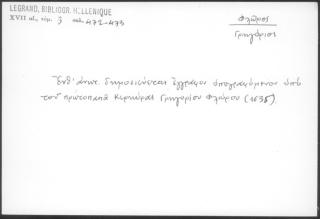 LEGRAND, BIBLIOGR. HELLENIQUE
XVII αἰ., τόμ. 3 σελ. 472-473
Φλῶρος
Γρηγόριος
Ἔνθ' ἀνωτ. δημοσιεύεται ἔγγραφον ὑπογραφόμενον ὑπὸ
τοῦ πρωτοπαπᾶ Κερκύρας Γρηγορίου Φλώρου (1635).